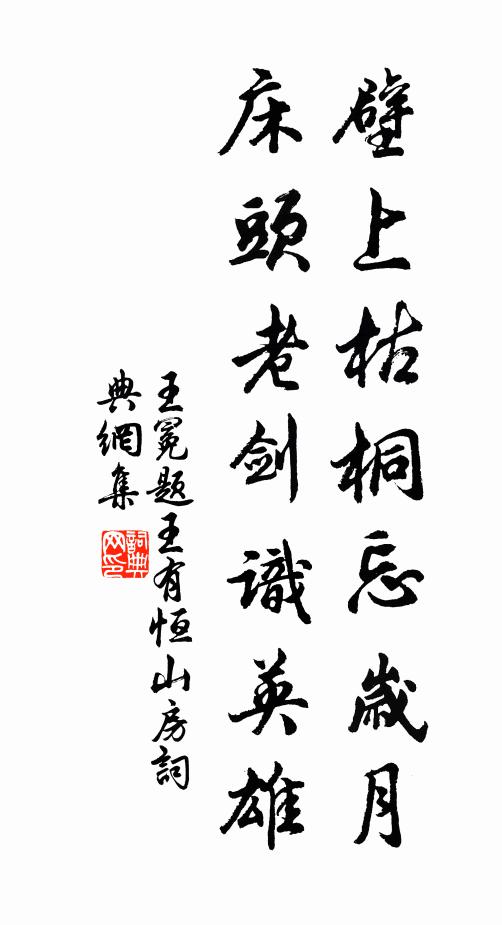 壁上枯桐忘歲月
床頭老劍識英雄
王冕題王有恒山房詞
典網集
詞典
网印